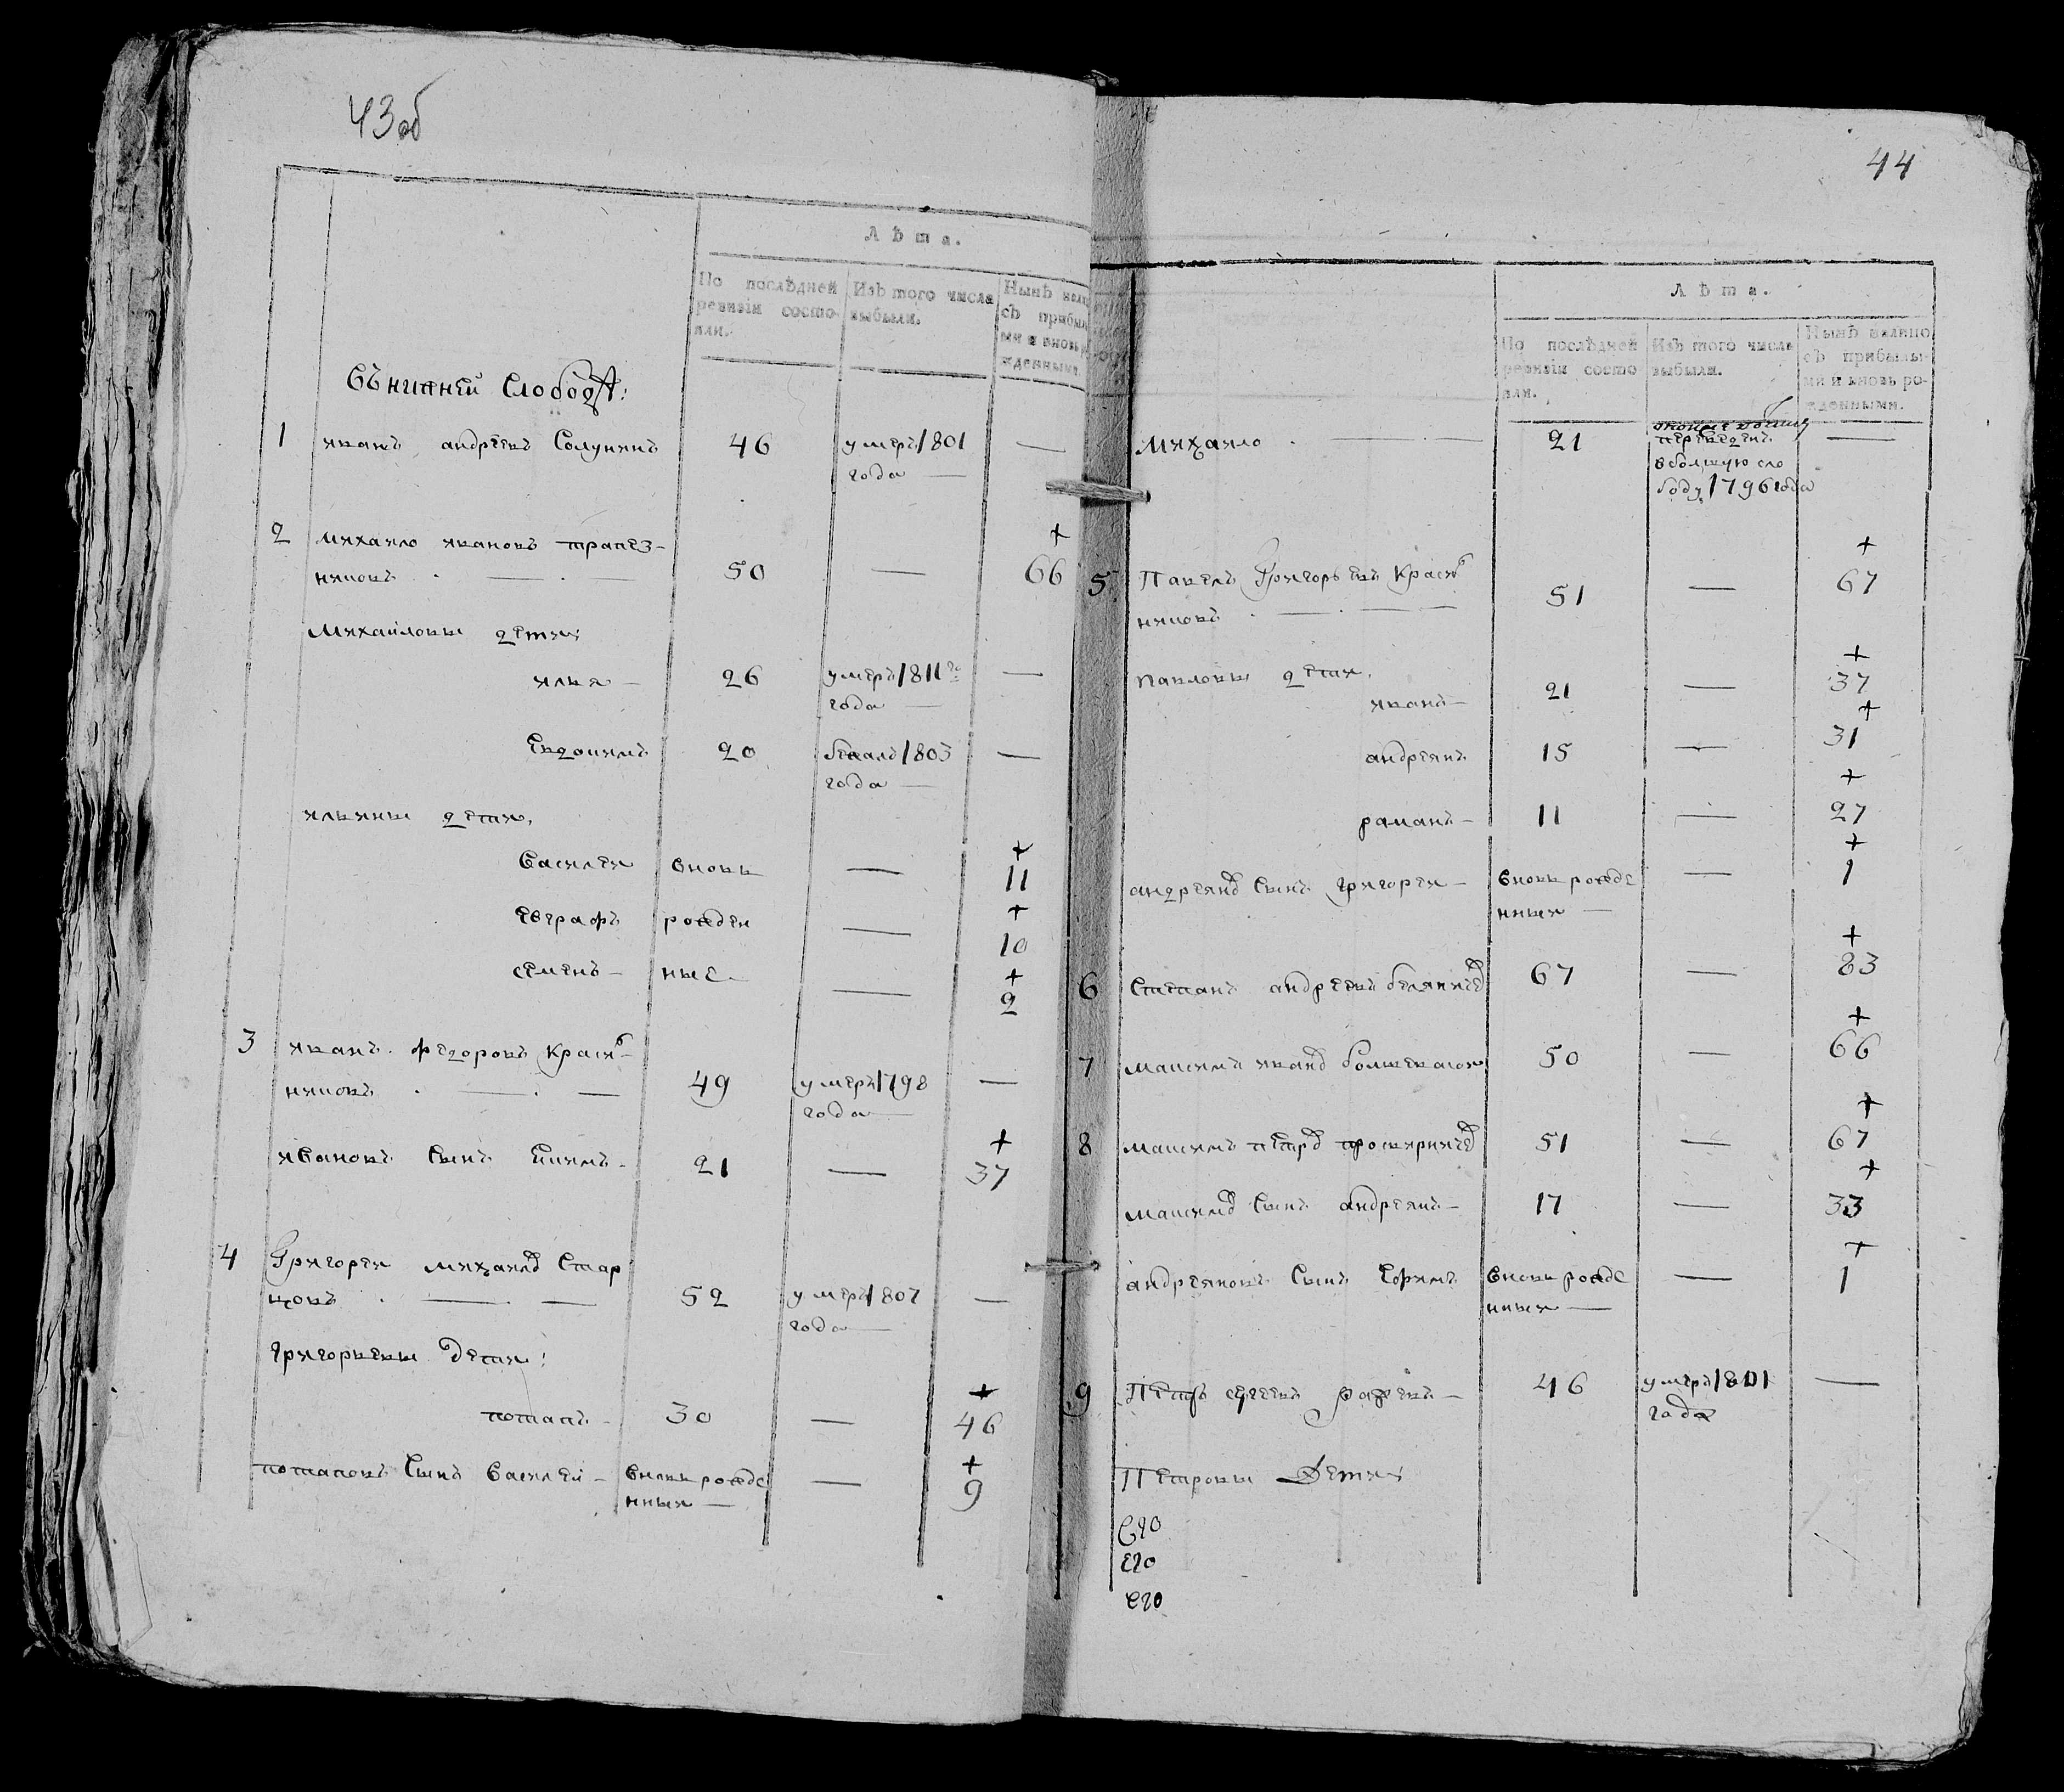 43об
Лѣта.
По послѣдней ревизіи состояли.
Изъ того числа выбыли.
Нынѣ на лицо съ прибылыми и вновь рожденными.
Въ нижней Слободѣ:
1 иванъ андрѣевъ Солунинъ 46 умеръ 1801 —
года —
2 михайло ивановъ трапез- +
никовъ . — . — 50 — 66
Михайловы дети:
илья — 26 умеръ 1811го —
года —
Евдокимъ 20 бежалъ 1803 —
года —
ильины дети,
+
Василеи вновь — 11
+
еврафъ рожден — 10
+
семенъ — ные — — 2
3 иванъ федоровъ Красиль-
никовъ . — . — 49 умеръ 1798 —
года —
+
ивановъ Сынъ Екимъ — 21 — 37
4 Григореи михаилов Стар
цовъ . — — 52 умеръ 1807 —
года —
григорьевы дети:
+
потапъ — 30 — 46
+
потаповъ Сынъ Василеи — Вновь рожде — 9
нныи —
44
Лѣта.
По послѣдней ревизіи состояли.
Изъ того числа выбыли.
Нынѣ налицо съ прибылыми и вновь рожденными.
Михаило . — — 21 переведенъ —
вболшую сло
боду 1796 года
+
5 Павелъ Григорьевъ Красиль
никовъ . — . — — 51 — 67
+
павловы дети,
иванъ — 21 — 37
+
андреянъ 15 — 31
+
раманъ — 11 — 27
+
андреянов Сынъ григореи — Вновь рожде — 1
нныи —
+
6 Степанъ андреевъ 67 — 83
+
7 Максимъ иванов 50 — 66
+
8 Максимъ петров просвирнинъ 51 — 67
+
максимов Сынъ андреянъ — 17 — 33
+
андреяновъ Сынъ Ефимъ Вновь рожде — 1
нныи —
9 Петръ сергеевъ 46 умеръ 1801 —
года
Петровы Дети:
Его
его
его